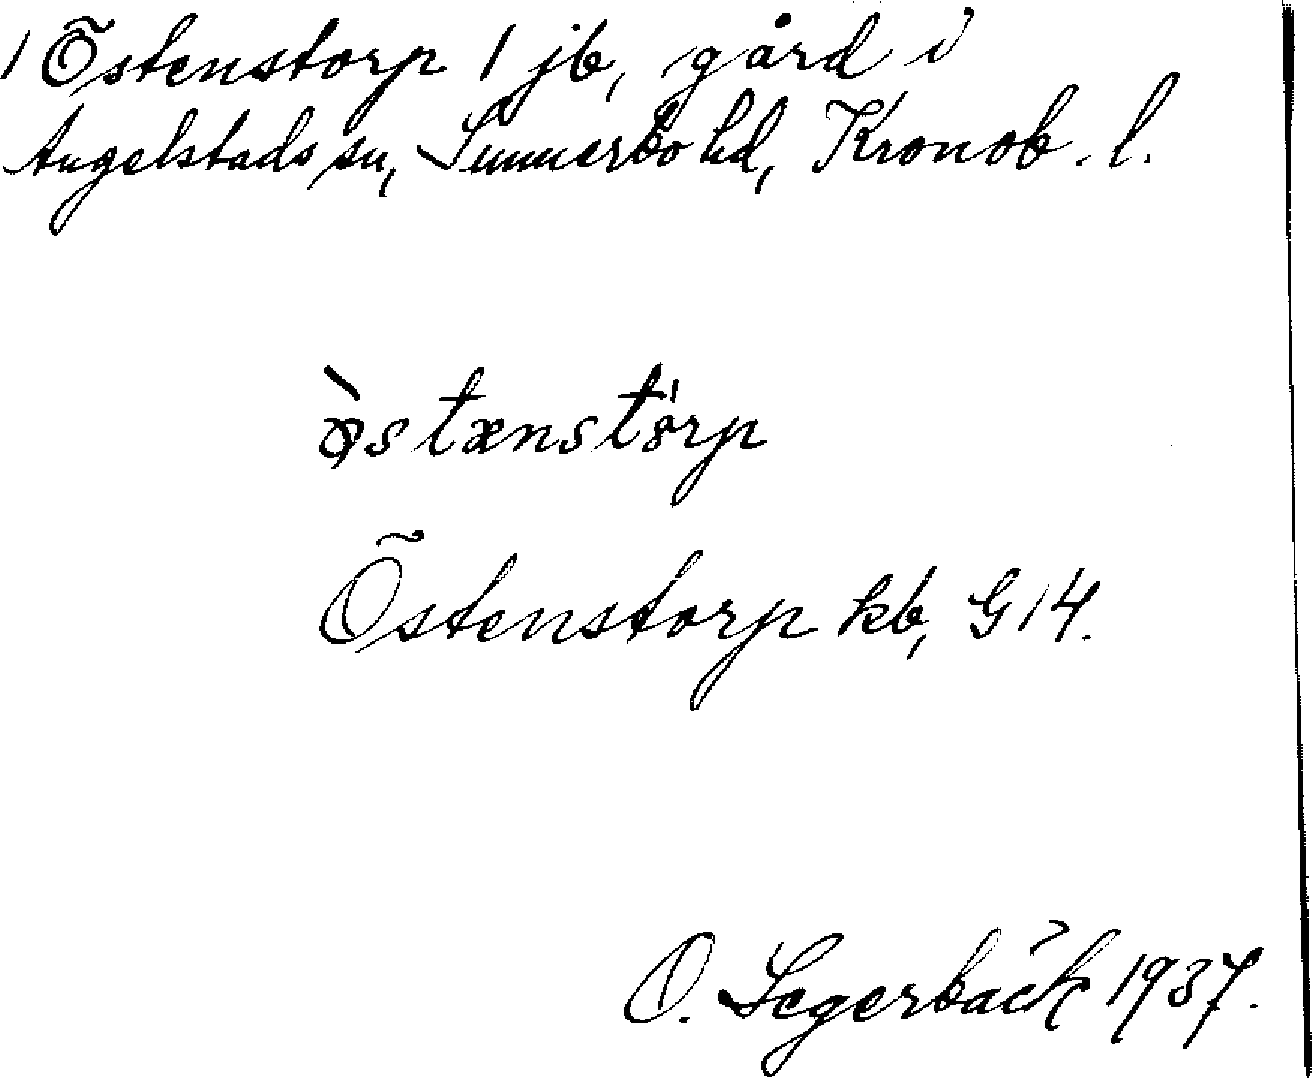 1 Östenstorp 1 jb, gård i
Angelstads sn, Sunnerbo hd, Kronob. l.
östænstòrp
Östenstorp kb, G 14.
O. Segerbäck 1937.